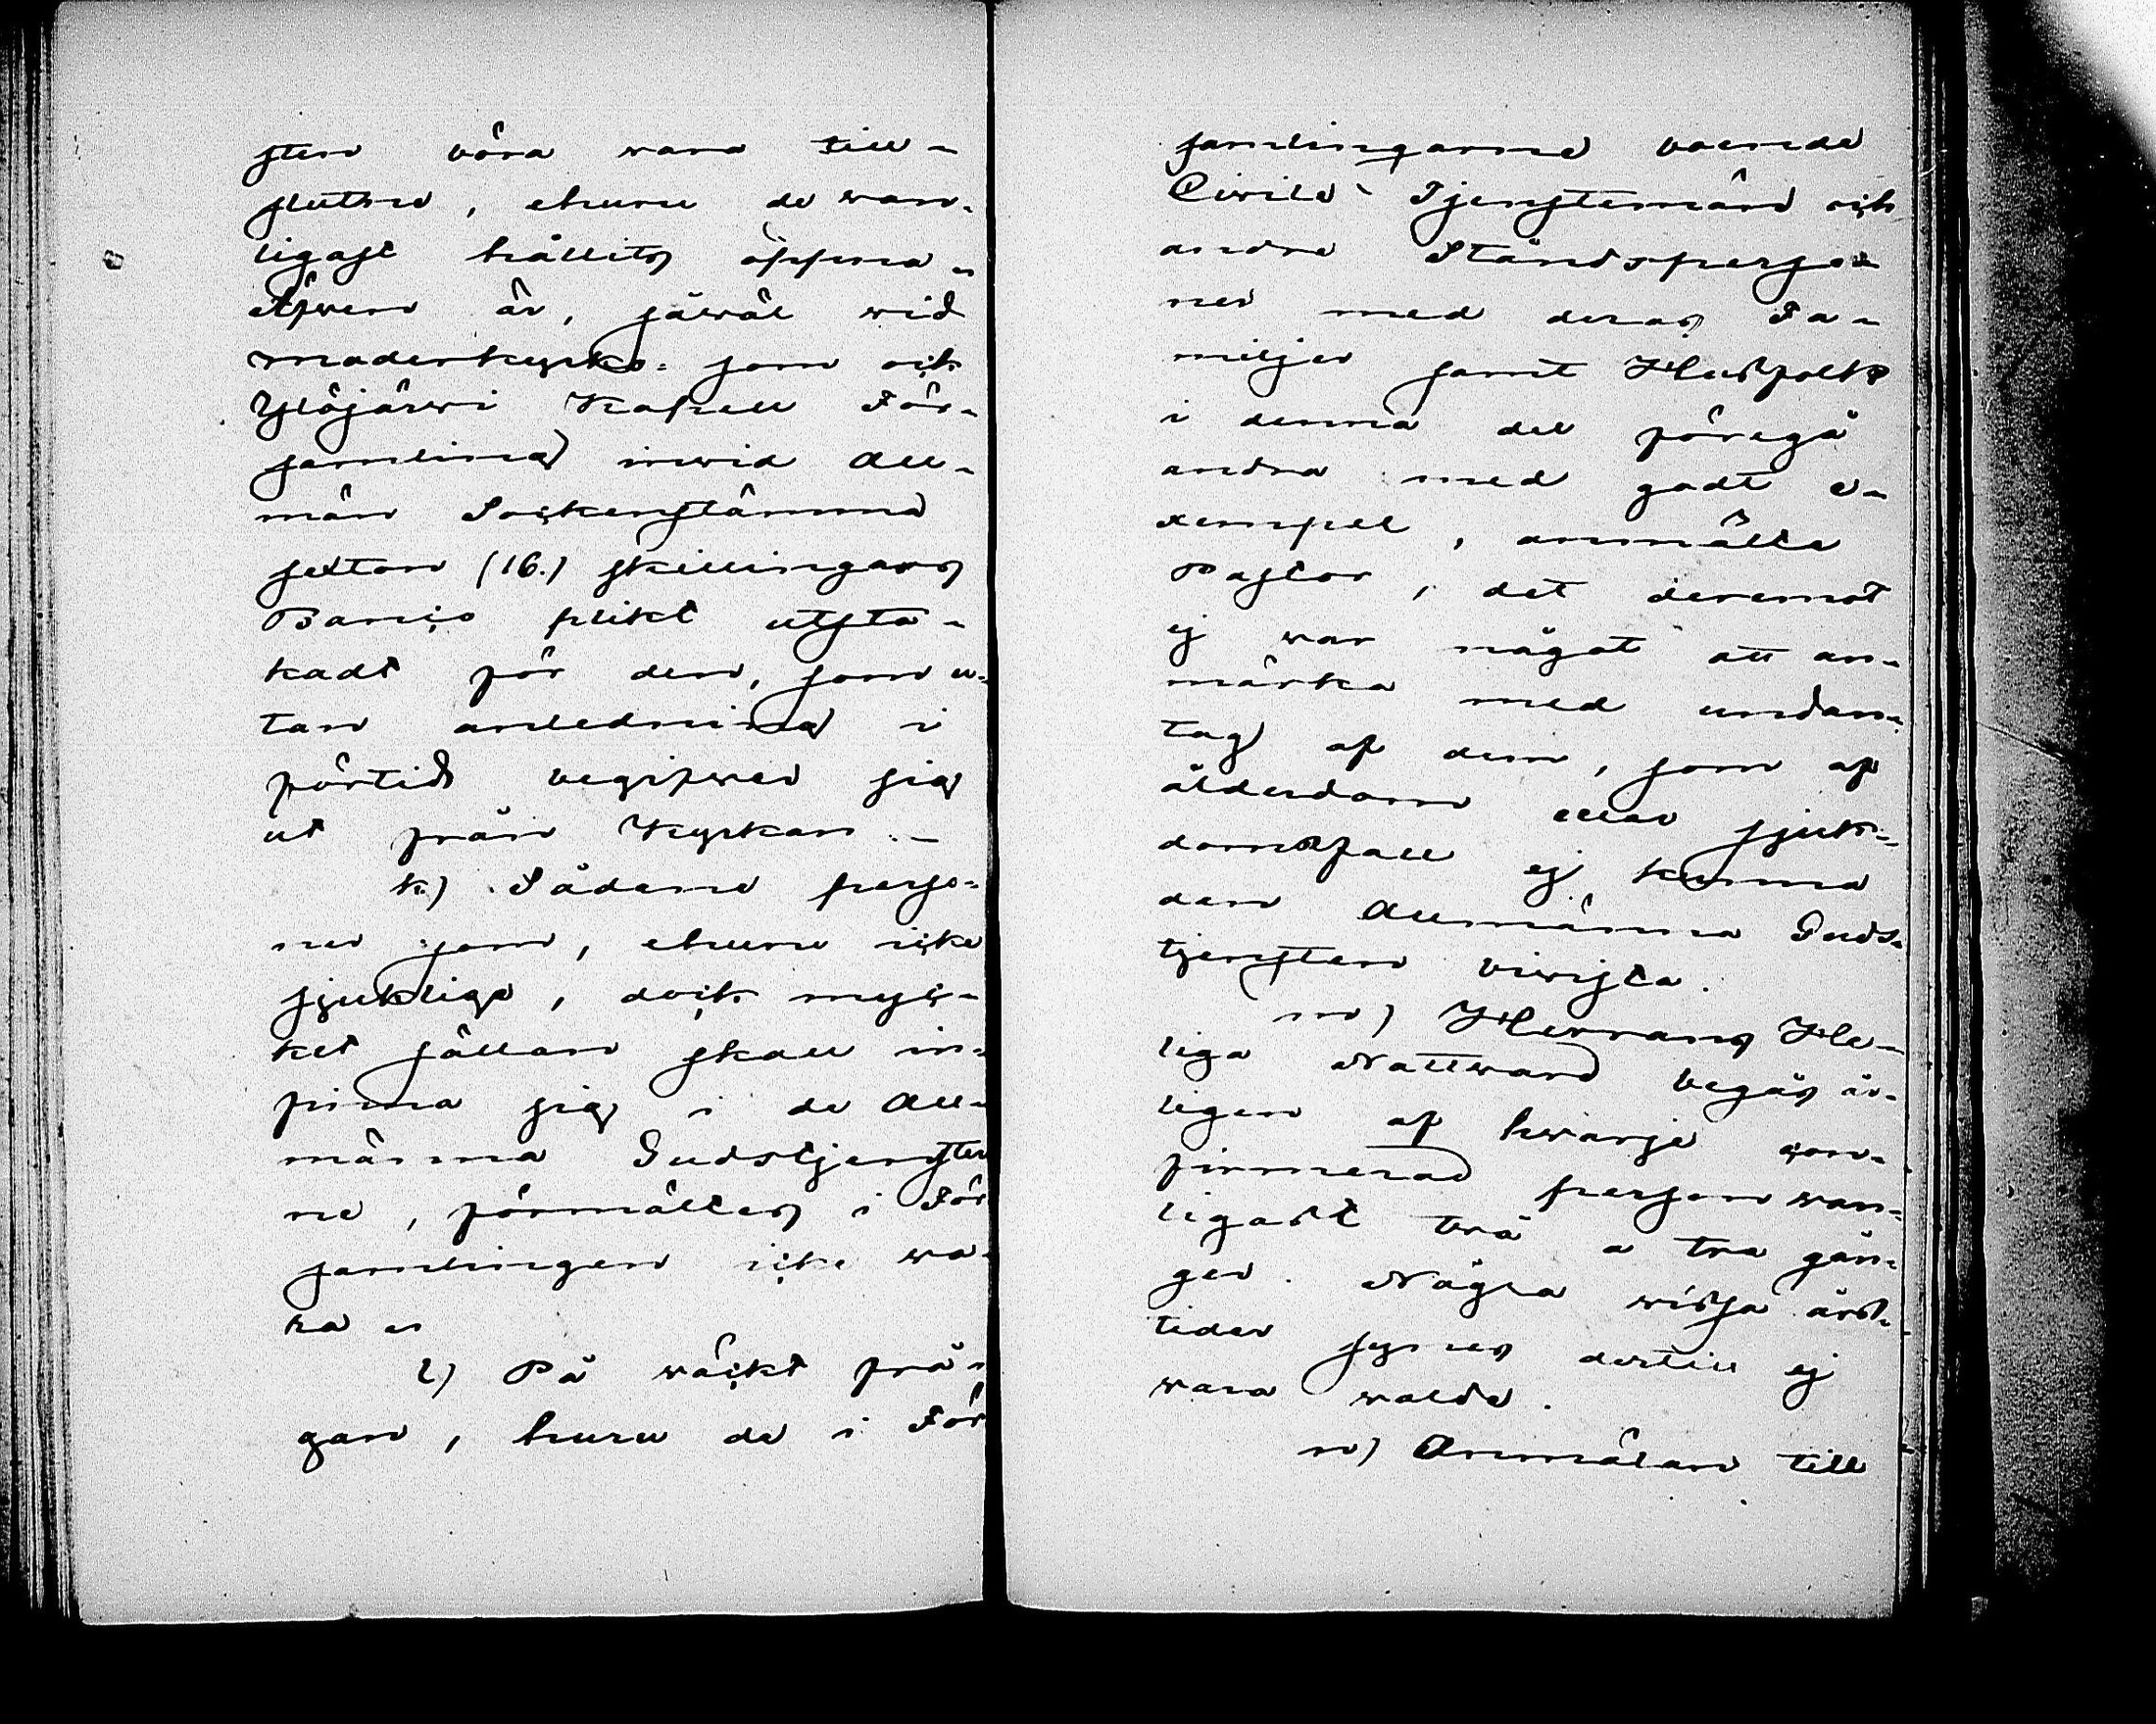 sten böra vara till-
slutne, ehuru de van-
ligast hållits öppna.
Äfven är, såväl vid
moderkyrko- som ock
Ylöjärvi Kapell För-
samling invid All-
män Sockenstämma
sexton (16.) skillingars
Banco plikt utsta-
kadt för den, som u-
tan anledning i
förtid begifver sig
ut från Kyrkan.-
k) Sådane perso-
ner som, ehuru icke
sjuklige, dock myc-
ket sällan skall in-
finna sig i de All-
männa Gudstjenster
ne, förmältes i För
samlingen icke va-
ra
l) På väckt frå-
gan, huru de i För
samlingarne boende
Civile Tjenstemän och
andre Ståndsperso-
ner med deras Fa-
miljer samt Husfolk
i denna del föregå
andra med godt e-
xempel, anmälte
Pastor, det deremot
ej var något att an-
märka med undan-
tag af dem, som af
ålderdom eller sjuk-
domsfall ej kunna
den Allmänna Guds-
tjensten bivista.
m) Herrans He-
liga Nattvard begås år-
ligen af hvarje con-
firmerad person van-
ligast två a tre gån-
ger. Några vissa års-
tider synes dertill ej
vara valde.
n) Anmälan till